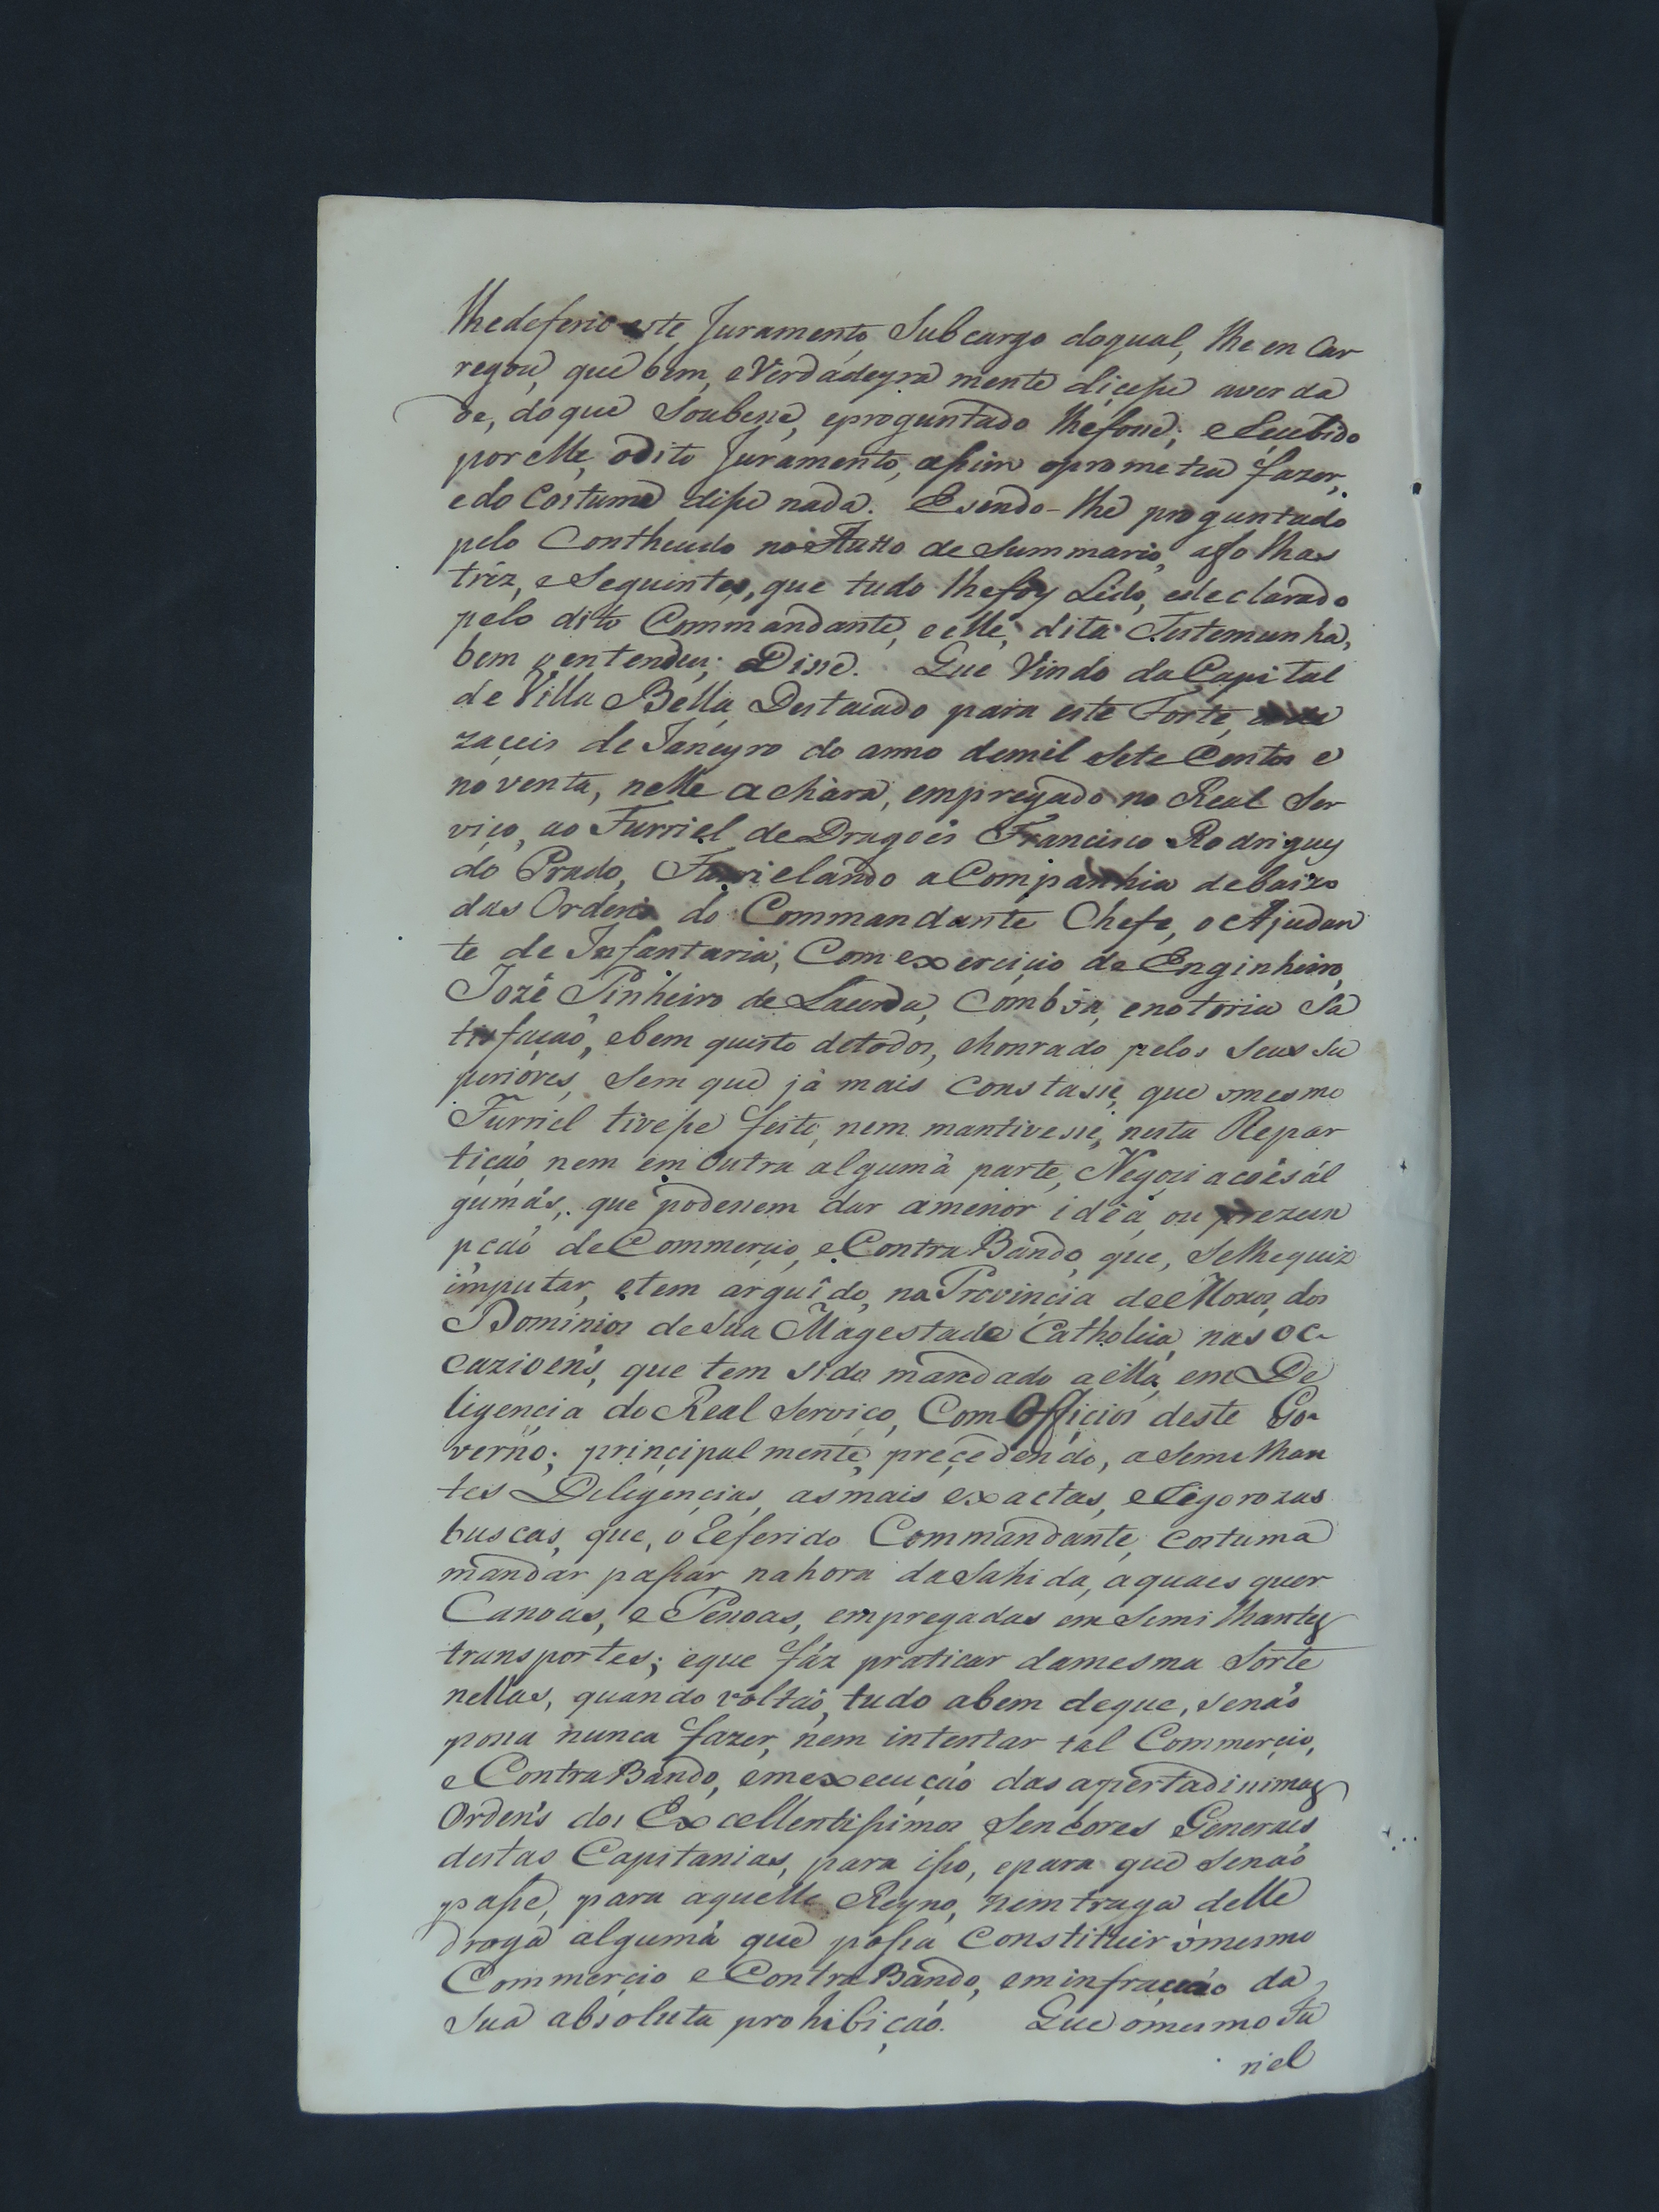 lhedeferio este Juramento, Sub cargo doqual, lhe en Car
regou, que bem, e Verdadeyra mente diçesse aver da
de, do que Soubesse, e proguntado lhe fosse; e Recebido
por elle, o dito Juramento, assim oprometeu fazer,
e do Costume disse nada. E sendo-lhe proguntado
pelo Contheudo no Autto de Summario, afo lhas
trez, e Seguintes, que tudo lhe foy Lido, e declarado
pelo dito Commandante, e elle, dita Testemunha,
bem o entendeu; Disse. Que Vindo da Capital
de Villa Bella Destacado para este Forte, a de
zaçeis de Janeyro do anno demil Sete Centos e
noventa, nelle achára, empregado no Real Ser
viço, ao Furriel de Dragoẽs Francisco Rodrigues
do Prado, Furrielando a Companhia debaixo
das Ordens do Commandante Chefe, o Ajudan
te de Infantaria, Com exerciçio de Enginheiro,
Jozé Pinheiro de Lacerda, Com bôa, e notoria Sa
tisfaçaõ, e bem quisto detodos, e honrado pelos Seus Su
periores, Sem que já mais constasse, que o mesmo
Furriel tivesse feito, nem mantivesse, nesta Repar
tiçaõ, nem em outra alguma parte, Negoci acoẽs ál
gumas, que podessem dar amenor idêa, ou prezun
pçaõ de Commerçio, e Contra Bando, que, Selhe quiz
imputar, e tem arguîdo, na Provinçia de Moxos, dos
Dominios de Sua Magestade Catholica, nas oc-
cazioens, que tem sido mandado a ella, em De
ligencia do Real Serviço, Com Officios deste Go-
verno; prinçipal mente, preçedendo, a Seme lhan
tes Deligençias, as mais exactas, e Rigorozas
buscas, que, o Referido Commandante, costuma
mandar passar, na hora da Sahida, a quaes quer
Canoas, e Pessoas, empregadas em Semi lhantes
transportes; e que fáz praticar damesma Sorte
nellas, quando voltaõ, tudo abem deque, se naõ
possa nunca fazer, nem intentar tal Commerçio,
e Contra Bando, em execuçaõ das apertadissimas
Ordens dos Excellentissimos Senhores Generaes
destas Capitanias, para isso, e para que Se naõ
passe, para aquelle Reyno, nem traga delle
droga algumá que possa Constituir o mesmo
Commerçio e Contra Bando, em infracçaõ da
Sua absoluta prohibiçaõ. Que o mesmo Fu
riel